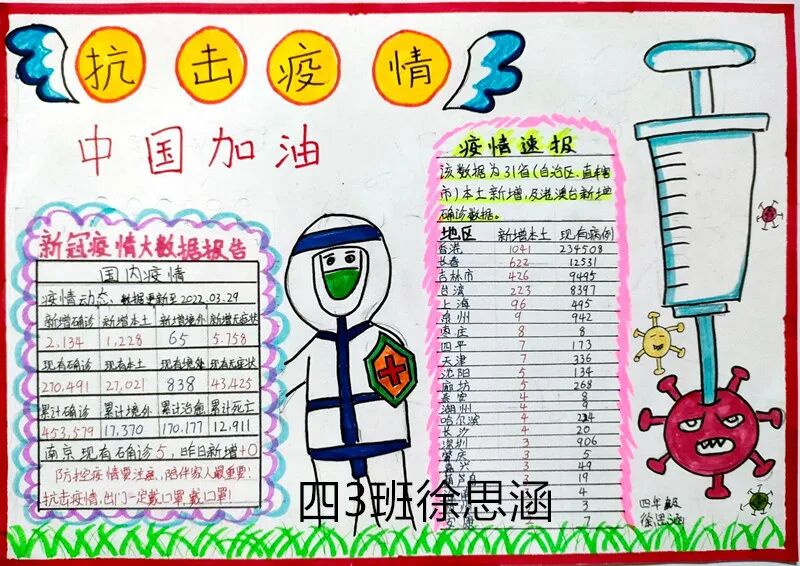 抗击疫情
中国加油
新冠疫情大数据报告
国内疫情
疫情动态、数据更新至2022.03.29
新增确诊 新增本土 新增境外 新增无症状
2,134 1,228 65 5.758
现有确诊 现有本土 现有境外 现有无症状
270,491 27,021 838 43,425
累计确诊 累计境外 累计治愈 累计死亡
453,579 17,370 170.177 12,911
南京现有确诊5,昨日新增+0
防控疫情要注意,陪伴家人最重要!
抗击疫情,出门一定戴口罩,戴口罩!
疫情速报
该数据为31省(自治区、直辖
市)本土新增,及港澳台新增
确诊数据。
地区 新增本土 现有病例
香港 1041 234508
长春 622 12531
吉林市 426 9495
台湾 223 8397
上海 96 495
泉州 9 942
枣庄 8 8
四平 7 173
天津 7 336
沈阳 5 134
廊坊 5 268
泰安 4 8
湖州 4 9
哈尔滨 4
长沙 4 20
深圳 3 906
肇庆 3 5
嘉兴 3 49
3 19
4
3
7
四年级
徐思涵
四3班徐思涵